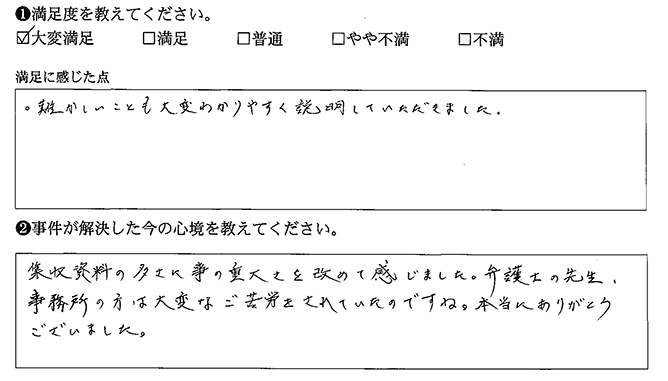 ❶満足度を教えてください。
☑大変満足 □満足 □普通 □やや不満 □不満
満足に感じた点
。難かしいことも大変わかりやすく説明していただきました。
❷事件が解決した今の心境を教えてください。
集収資料の多さに事の重大さを改めて感じました。弁護士の先生、
事務所の方は大変なご苦労をされていたのですね。本当にありがとう
ございました。